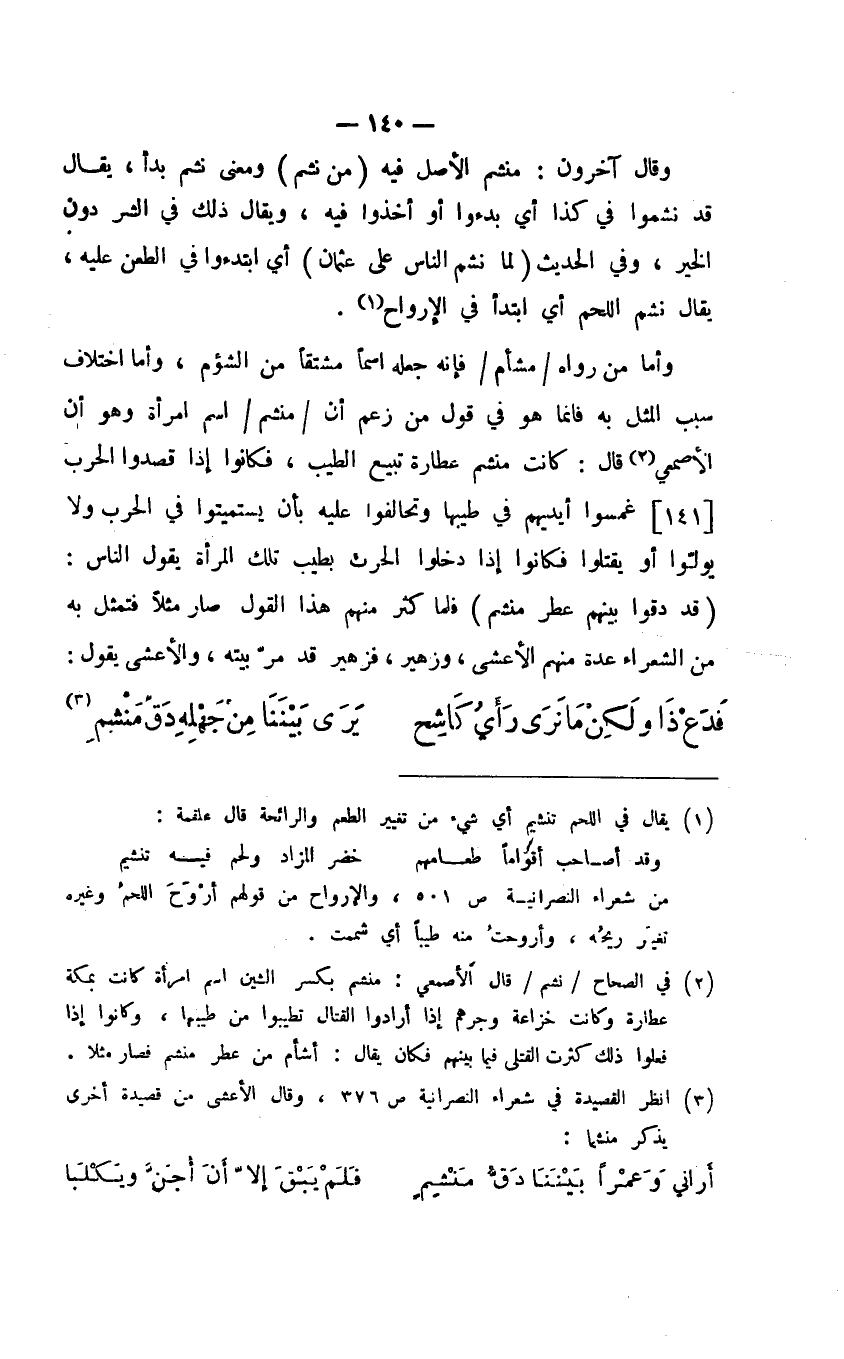 — ١٤٠ —
وقال آخرون : منشم الأصل فيه ( من نشم ) ومعنى نشم بدأ ، يقال
قد نشموا في كذا أي بدءوا أو أخذوا فيه ، ويقال ذلك في الشر دون
الخير ، وفي الحديث ( لما نشم الناس على عثمان ) أي ابتدءوا في الطعن عليه ،
يقال نشم اللحم أي ابتدأ في الإرواح(١) .
وأما من رواه / مشأم / فإنه جعله اسماً مشتقاً من الشؤم ، وأما اختلاف
سبب المثل به فانما هو في قول من زعم أن / منشم / اسم امرأة وهو أن
الأصمعي(٢) قال : كانت منشم عطارة تبيع الطيب ، فكانوا إذا قصدوا الحرب
[١٤١] غمسوا أيديهم في طيبها وتحالفوا عليه بأن يستميتوا في الحرب ولا
يولّوا أو يقتلوا فكانوا إذا دخلوا الحرب بطيب تلك المرأة يقول الناس :
( قد دقوا بينهم عطر منشم ) فلما كثر منهم هذا القول صار مثلاً فتمثل به
من الشعراء عدة منهم الأعشى ، وزهير ، فزهير قد مرّ بيته ، والأعشى يقول :
فَدَعْ ذَا ولَكِنْ مَا نَرَى رَأْيُ كَاشِحٍ يَرَى بَيْنَنَا مِنْ جَهْلِهِ دَقَّ مَنْشِمِ(٣)
(١) يقال في اللحم تنشيم أي شيء من تغيير الطعم والرائحة قال علقمة :
وقد أصاحب أقواماً طعامهم خضر المزاد ولحم فيه تنشيم
من شعراء النصرانية ص ٥٠١ ، والإرواح من قولهم أرْوَحَ اللحمُ وغيره
تغيّر ريحُه ، وأروحتُ منه طيباً أي شممت .
(٢) في الصحاح / نشم / قال الأصمعي : منشم بكسر الشين اسم امرأة كانت بمكة
عطارة وكانت خزاعة وجرهم إذا أرادوا القتال تطيبوا من طيبها ، وكانوا إذا
فعلوا ذلك كثرت القتلى فيما بينهم فكان يقال : أشأم من عطر منشم فصار مثلا .
(٣) انظر القصيدة في شعراء النصرانية ص ٣٧٦ ، وقال الأعشى من قصيدة أخرى
يذكر منشما :
أراني وَعَمْراً بَيْنَنَا دَقُّ مَنْشِيمٍ فَلَمْ يَبْقَ إلاّ أَنَ أُجَنَّ ويَكْلَبَا